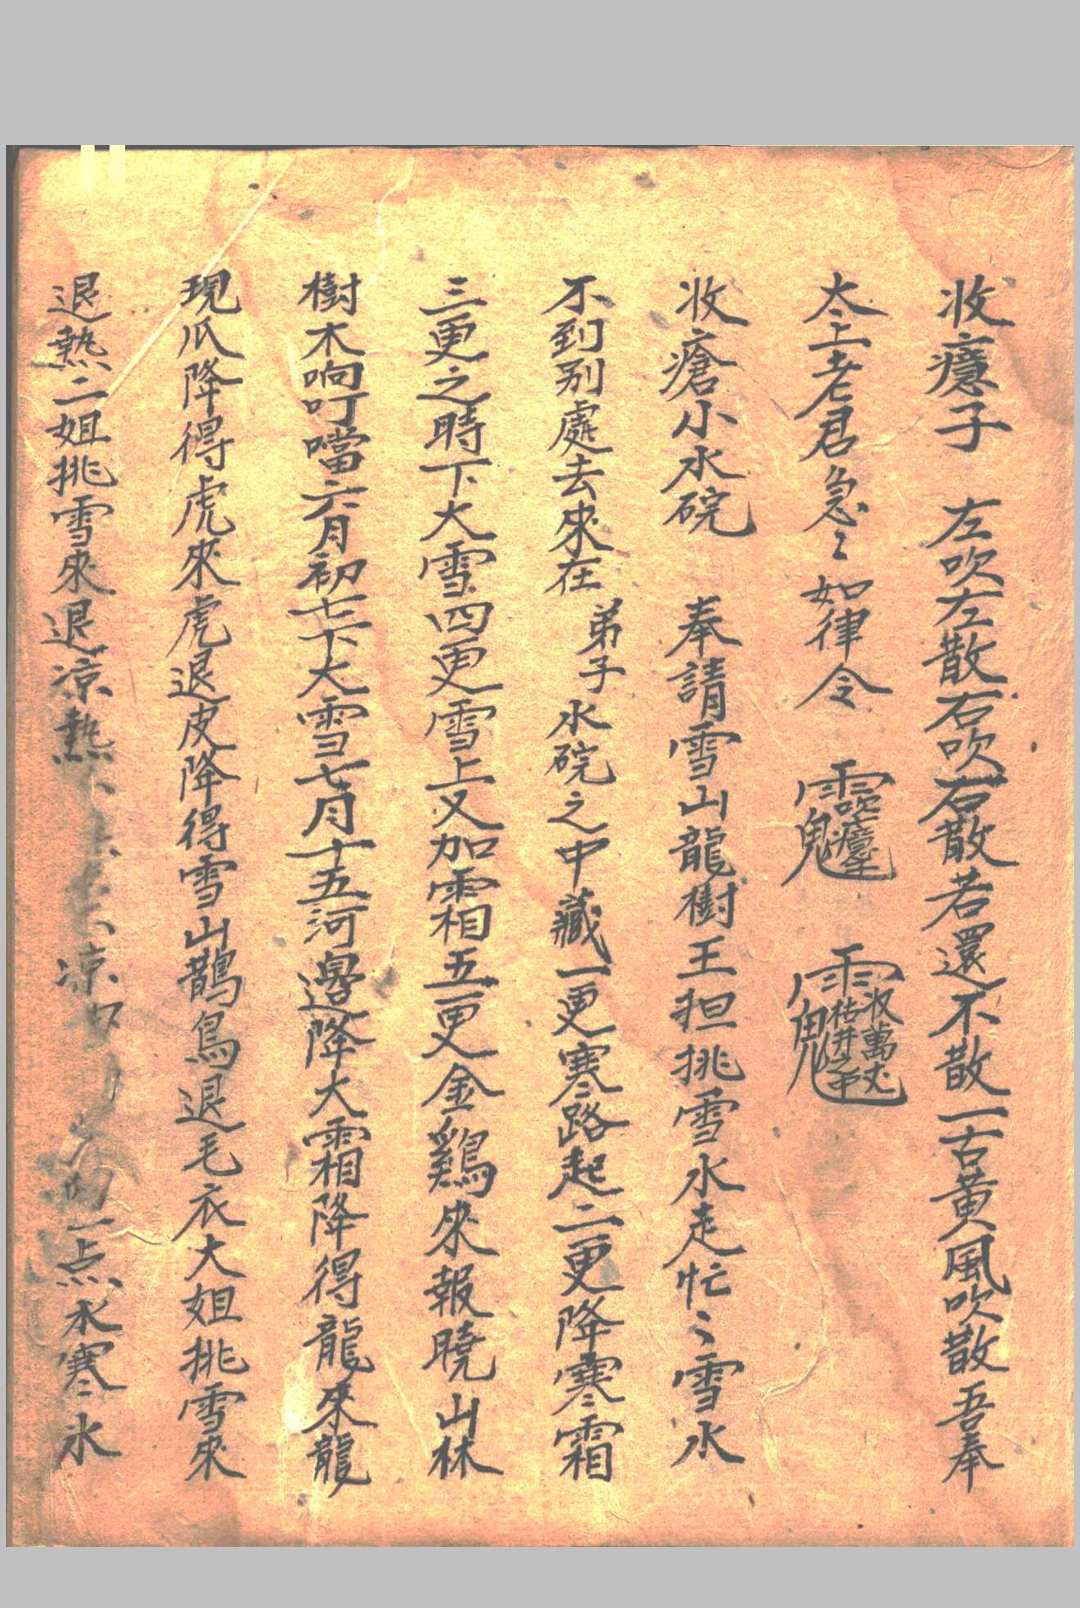 收癔子 左吹左散右吹右散若還不散一古黃風吹散吾奉
太上老君急〻如律令
收瘡小水碗 奉請雪山龍樹王担挑雪水走忙〻雪水
不到別處去來在弟子水碗之中藏一更寒路起二更降寒霜
三更之時下大雪四更雪上又加霜五更金鷄來報曉山林
樹木响叮噹六月初七下大雪七月十五河邊降大霜降得龍來龍
現爪降得虎來虎退皮降得雪山鵲鳥退毛衣大姐挑雪來
退熱二姐挑雪來退凉熱凉一点水寒氷